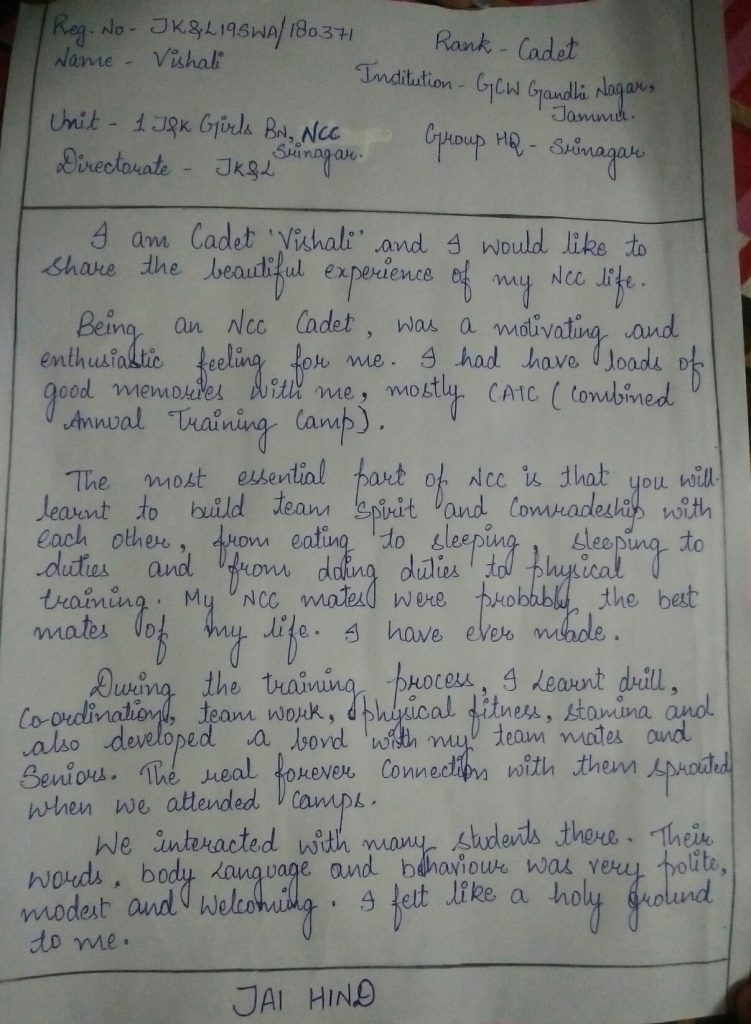 Reg. No - JK&L19SWA/180371
Rank - Cadet
Name - Vishali
Institution - GCW Gandhi Nagar,
Jammu.
Unit - 1 J&K Girls BN, NCC
Srinagar.
Group HQ - Srinagar
Directorate - JK&L
I am Cadet 'Vishali' and I would like to
share the beautiful experience of my NCC life.
Being an NCC Cadet, was a motivating and
enthusiastic feeling for me. I had have loads of
good memories with me, mostly CATC (Combined
Annual Training Camp).
The most essential part of NCC is that you will
learnt to build team spirit and Comradeship with
each other, from eating to sleeping, sleeping to
duties and from doing duties to physical
training. My NCC mates were probably the best
mates of my life. I have ever made.
During the training process, I learnt drill,
Co-ordination, team work, physical fitness, stamina and
also developed a bond with my team mates and
Seniors. The real forever Connection with them sprouted
when we attended Camps.
We interacted with many students there. Their
words, body language and behaviour was very polite,
modest and Welcoming. I felt like a holy ground
to me.
JAI HIND